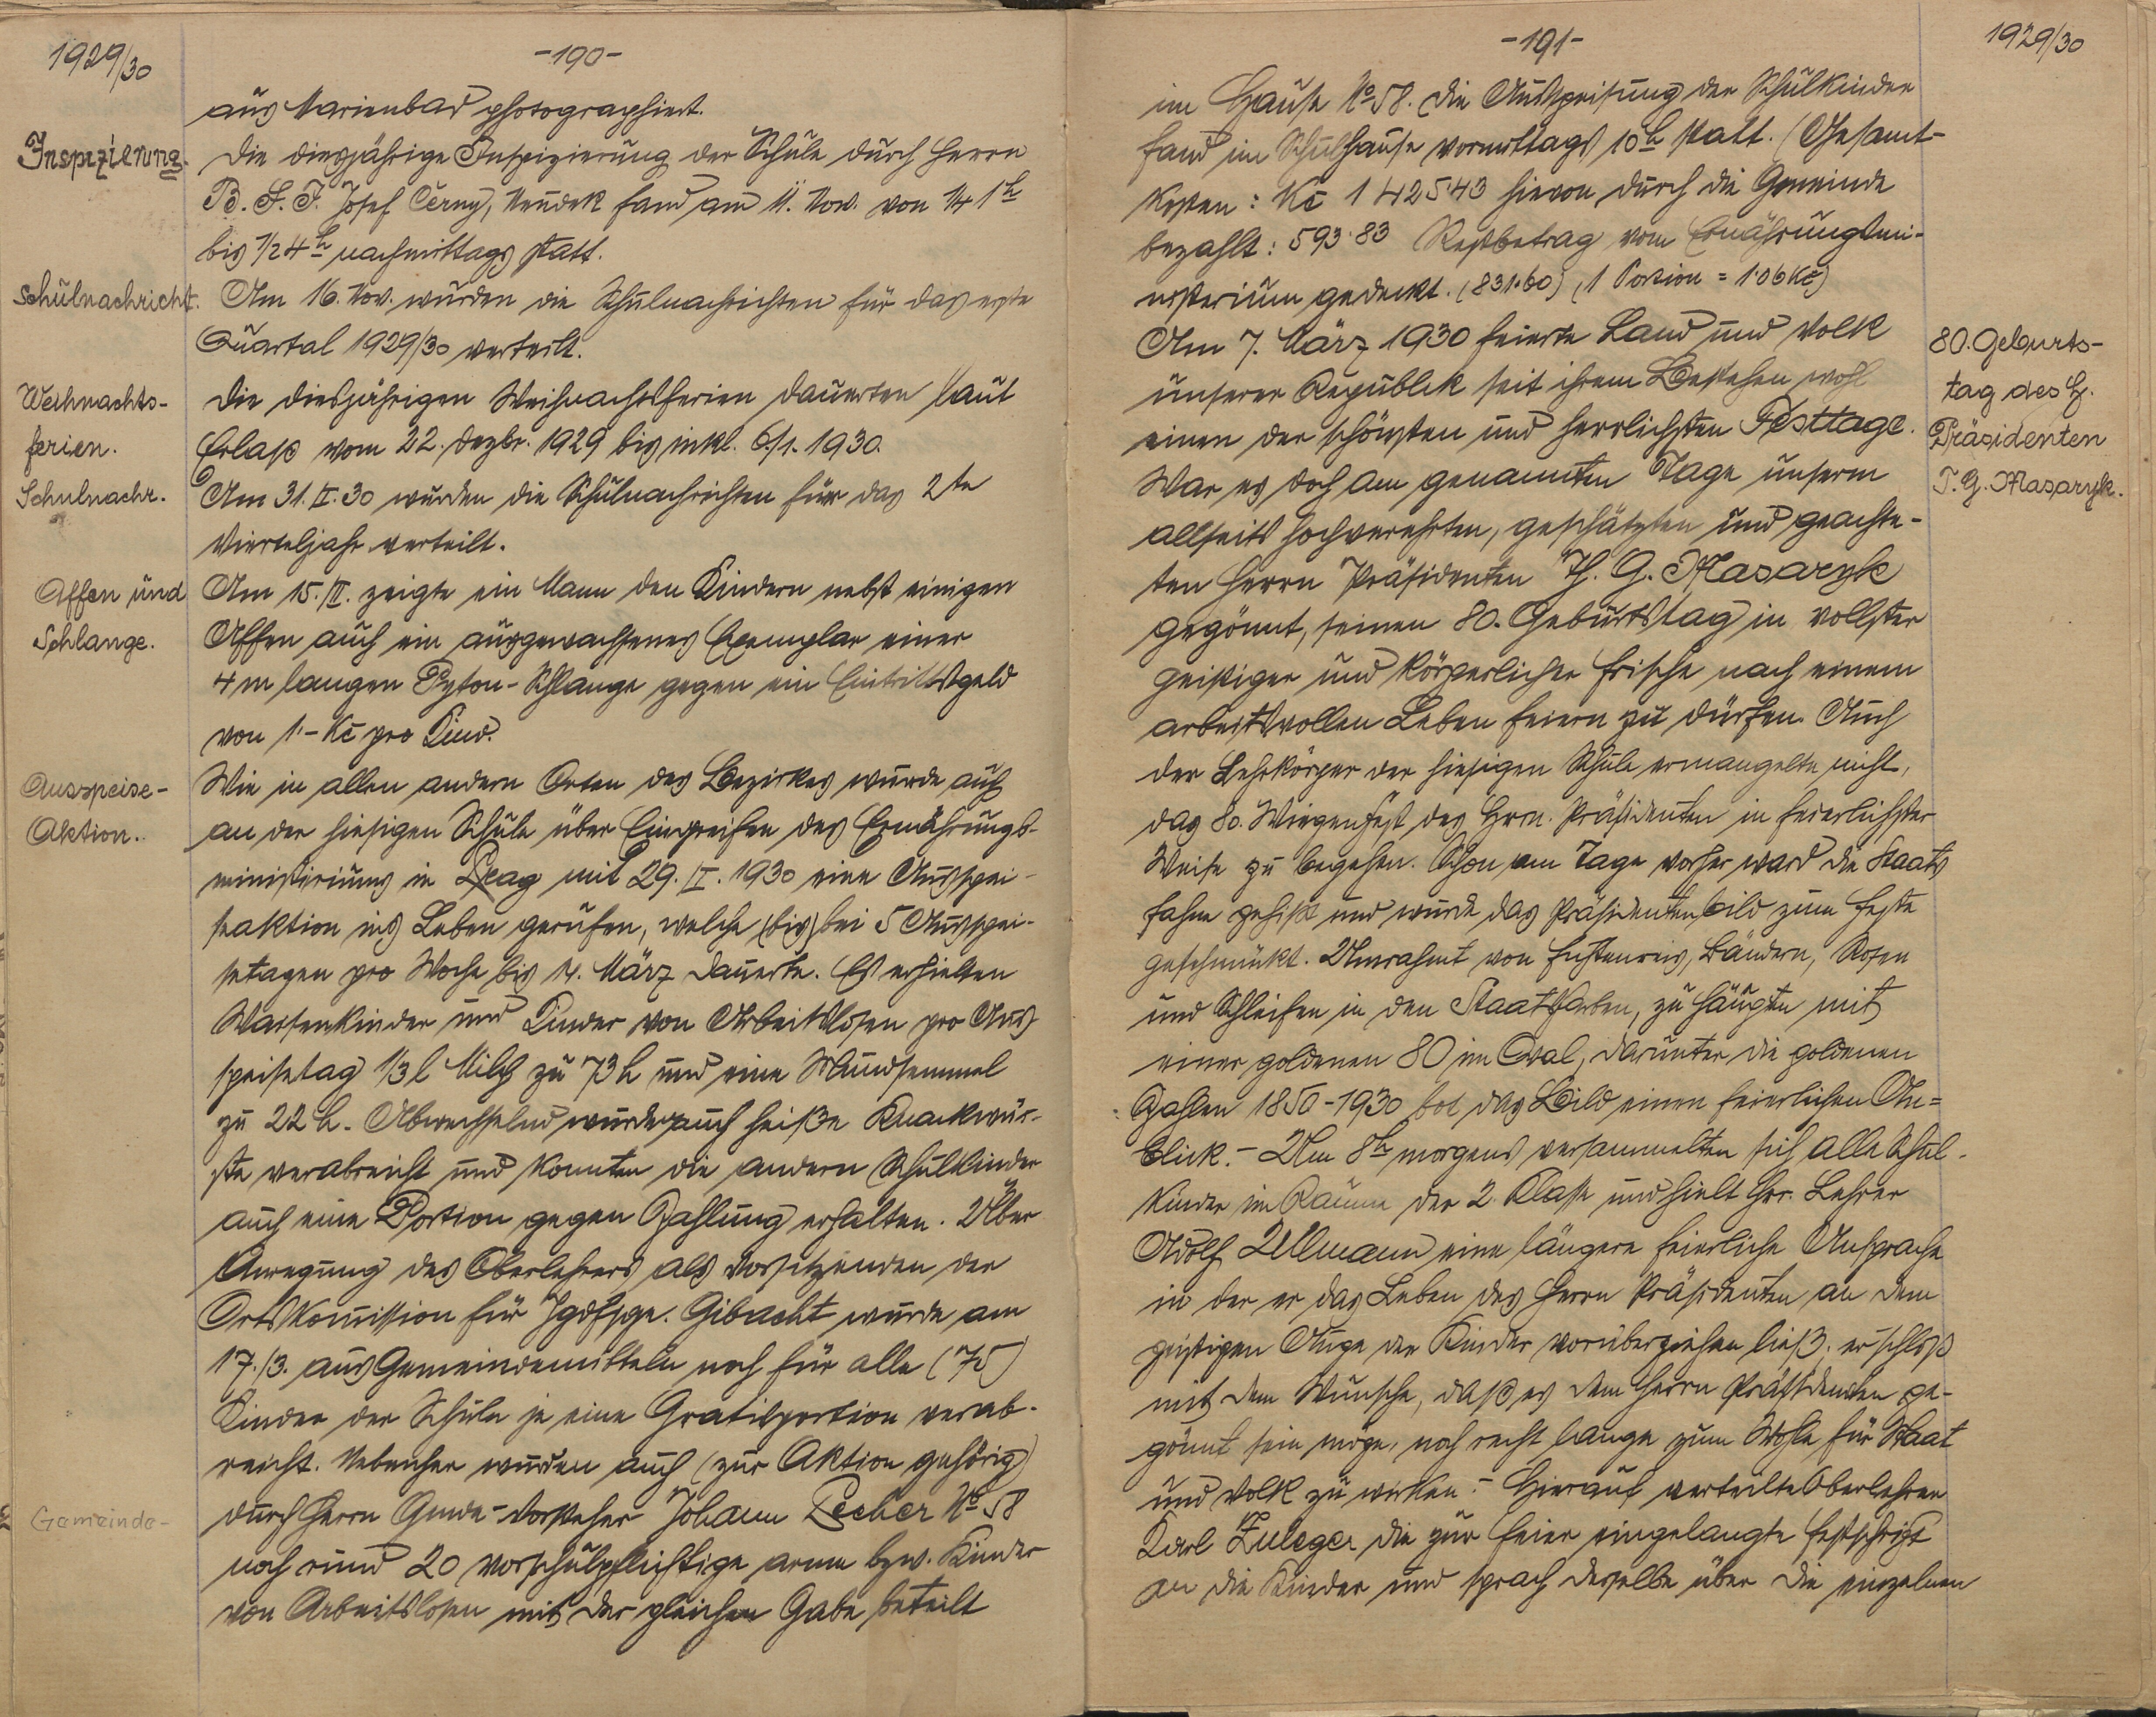 1929/30
-190-
aus Marienbad photographiert.
Inspizierung.
Die diesjährige Inspizierung der Schule durch Herrn
B. S. I. Josef Černy, Neudek fand am 11. Nov. von 1/4 1h
bis 1/2 4h nachmittags statt.
Schulnachricht.
Am 16. Nov. wurden die Schulnachrichten für das erste
Quartal 1929/30 verteilt.
Weihnachts-
ferien.
Die diesjährigen Weihnachtsferien dauerten laut
Erlass vom 22. Dezbr. 1929 bis inkl. 6./1. 1930.
Schulnachr.
Am 31. I. 30 wurden die Schulnachrichten für das 2te
Vierteljahr verteilt.
Affen und
Schlange.
Am 15./II. zeigte ein Mann den Kindern nebst einigen
Affen auch ein ausgewachsenes Exemplar einer
4 m langen Pyton-Schlange gegen ein Eintrittsgeld
von 1·- Kč pro Kind.
Ausspeise-
Aktion.
Wie in allen andern Orten des Bezirkes wurde auch
an der hiesigen Schule über Eingreifen des Ernährungs-
ministeriums in Prag mit 29. I. 1930 eine Ausspei-
seaktion ins Leben gerufen, welche (bis) bei 5 Ausspei-
setagen pro Woche bis 14. März dauerte. Es erhielten
Waisenkinder und Kinder von Arbeitslosen pro Aus-
speisetag 1/3 l Milch zu 73 h und eine Mundsemmel
zu 22 h. Abwechselnd wurden auch heiße Knackwür-
ste verabreicht und konnten die andern Schulkinder
auch eine Portion gegen Zahlung erhalten. Über
Anregung des Oberlehrers als Vorsitzenden der
Ortskomission für Jgdfsge. Gibacht wurde am
17./3. aus Gemeindemitteln noch für alle (75)
Kinder der Schule je eine Gratisportion verab-
reicht. Nebenher wurden auch (zur Aktion gehörig)
Gemeinde-
durch Herrn Gmde-Vorsteher Johann Pecher No 58
noch rund 20 vorschulpflichtige arme bzw. Kinder
von Arbeitslosen mit der gleichen Gabe beteilt
-191-
1929/30
im Hause No 58. Die Ausspeisung der Schulkinder
fand im Schulhause vormittags 10h statt. (Gesamt-
kosten: Kč 1425·43 hievon durch die Gemeinde
bezahlt: 593·83 Restbetrag vom Ernährungsmi-
nisterium gedeckt. (831·60) (1 Portion = 1·06 Kč)
80. Geburts-
tag des H.
Präsidenten
T. G. Masaryk.
Am 7. März 1930 feierte Land und Volk
unserer Republik seit ihrem Bestehen wohl
einen der schönsten und herrlichsten Festtage.
War es doch am genannten Tage unserm
allseits hochverehrten, geschätzten und geachte-
ten Herrn Präsidenten Th. G. Masaryk
gegönnt, seinen 80. Geburtstag in vollster
geistiger und körperlicher Frische nach einem
arbeitsvollen Leben feiern zu dürfen. Auch
der Lehrkörper der hiesigen Schule ermangelte nicht,
das 80. Wiegenfest des Hrn. Präsidenten in feierlichster
Weise zu begehen. Schon am Tage vorher ward die Staats
fahne gehisst und wurde das Präsidentenbild zum Feste
geschmückt. Umrahmt von Fichtenreis, Bändern, Rosen
und Schleifen in den Staatsfarben, zu häupten mit
einer goldenen 80 im Oval, darunter die goldenen
Zahlen 1850-1930 bot das Bild einen feierlichen An=
blick. - Um 8h morgens versammelten sich alle Schul-
kinder im Raume der 2. Klasse und hielt Hrr. Lehrer
Adolf Ullmann eine längere feierliche Ansprache
in der er das Leben des Herrn Präsidenten an dem
geistigen Auge der Kinder vorüberziehen ließ. er schloss
mit dem Wunsche, dass es dem Herrn Präsidenten ge-
gönnt sein möge, noch recht lange zum Wohle für Staat
und Volk zu wirken. - Hierauf verteilte Oberlehrer
Karl Zuleger die zur Feier eingelangte Festschrift
an die Kinder und sprach derselbe über die einzelnen